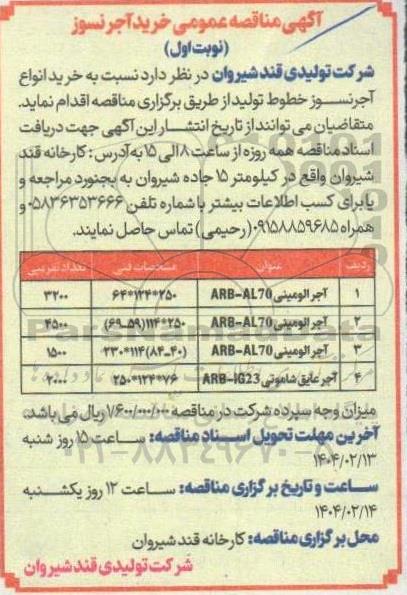 آگهی مناقصه عمومی خرید آجر نسوز
(نوبت اول)
شرکت تولیدی قند شیروان در نظر دارد نسبت به خرید انواع
آجر نسوز خطوط تولید از طریق برگزاری مناقصه اقدام نماید.
متقاضیان می توانند از تاریخ انتشار این آگهی جهت دریافت
اسناد مناقصه همه روزه از ساعت ۸ الی ۱۵ به آدرس: کارخانه قند
شیروان واقع در کیلومتر ۱۵ جاده شیروان به بجنورد مراجعه و
یا برای کسب اطلاعات بیشتر با شماره تلفن ۰۵۸۳۶۳۵۳۶۶۶ و
همراه ۰۹۱۵۸۸۵۹۶۸۵ (رحیمی) تماس حاصل نمایند.
ردیف عنوان مشخصات فنی تعداد تقریبی
۱ آجر الومینی ARB-AL70 ۲۵۰*۱۲۴*۶۴ ۳۲۰۰
۲ آجر الومینی ARB-AL70 ۲۵۰*۱۱۴(۵۹_۶۹) ۴۵۰۰
۳ آجر الومینی ARB-AL70 (۴۰_۸۴)۱۱۴*۲۳۰ ۱۵۰۰
۴ آجر عایق شاموتی ARB-IG23 ۷۶*۱۲۴*۲۵۰ ۲۰۰۰
میزان وجه سپرده شرکت در مناقصه ۱/۶۰۰/۰۰۰/۰۰۰ ریال می باشد.
آخرین مهلت تحویل اسناد مناقصه: ساعت ۱۵ روز شنبه
۱۴۰۴/۰۲/۱۳
ساعت و تاریخ برگزاری مناقصه: ساعت ۱۲ روز یکشنبه
۱۴۰۴/۰۲/۱۴
محل برگزاری مناقصه: کارخانه قند شیروان
شرکت تولیدی قند شیروان